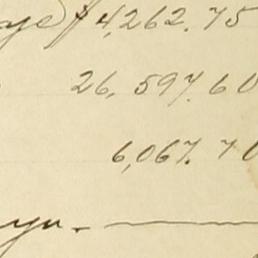 $4,262.75
26,597.60
6,067.70